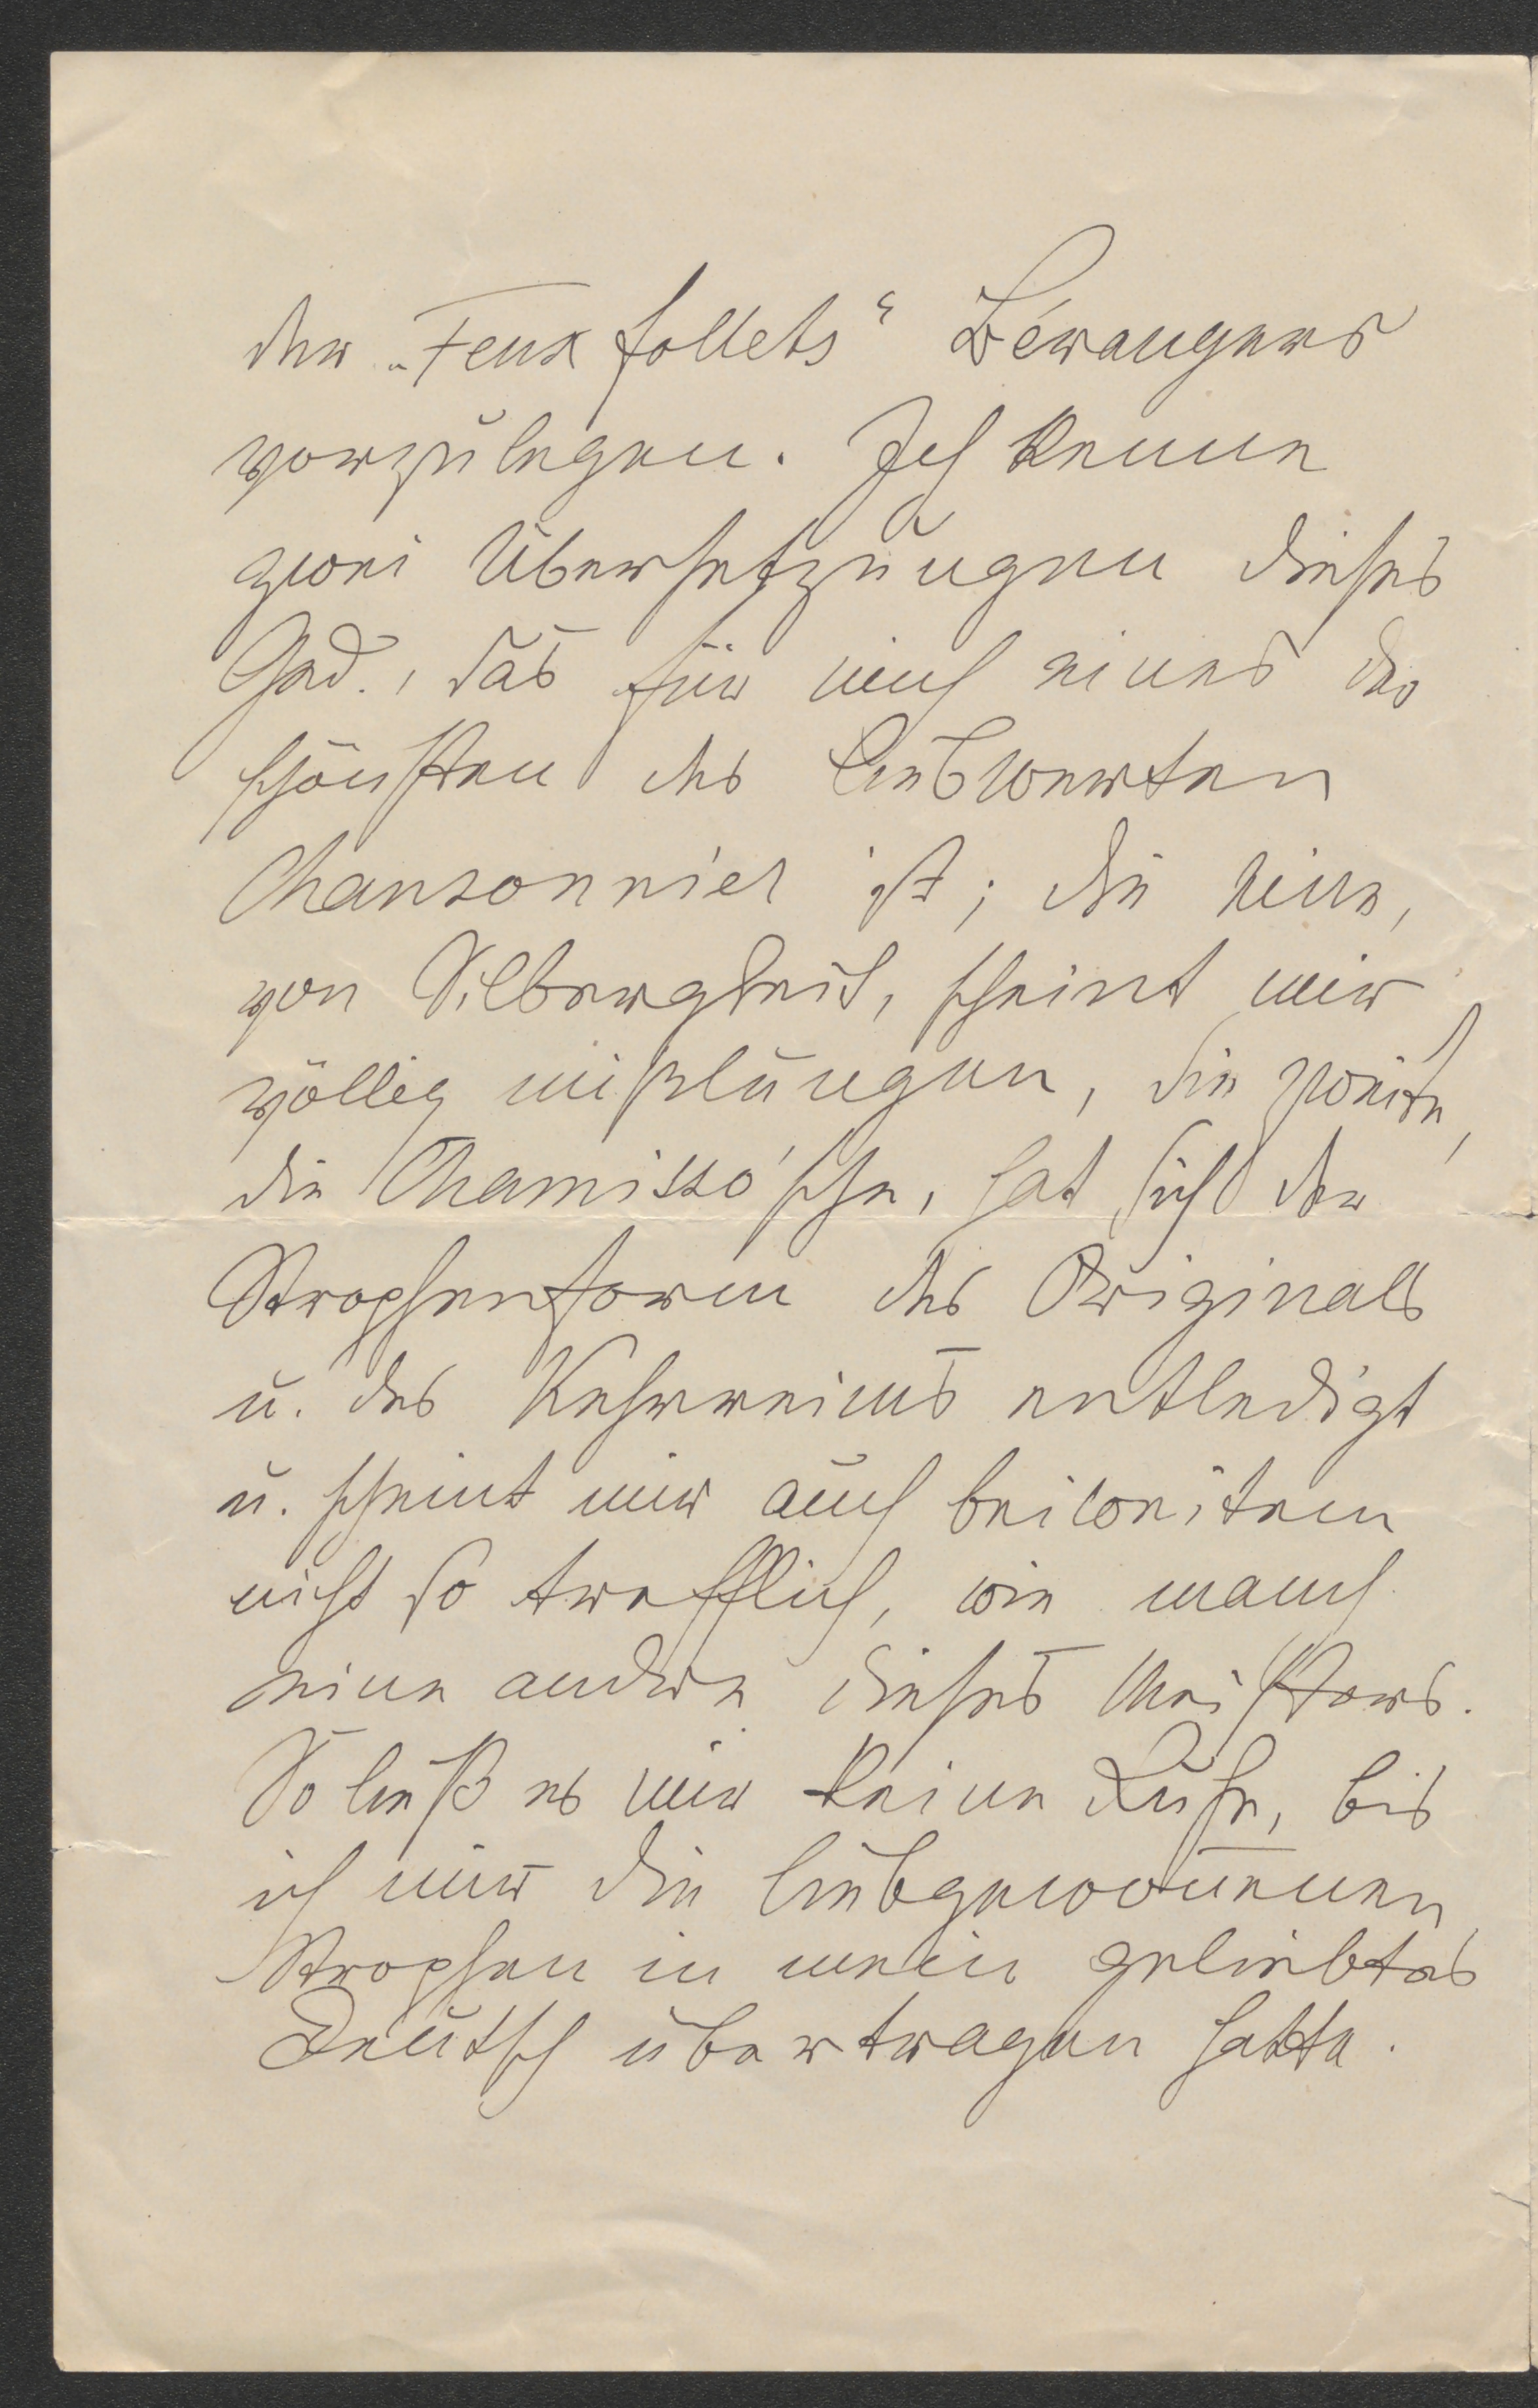 der „Feux follets“ Bérangers
vorzulegen. Ich kenne
zwei Übersetzungen dieses
Ged., das für mich eines der
schönsten des liebwerten
Chansonnier ist; die eine,
von Silbergleit, scheint mir
völlig mißlungen, die zweite,
die Chamisso'sche, hat sich der
Strophenform des Originals
u. des Kehrreims entledigt
u. scheint mir auch beiweitem
nicht so trefflich, wie manch
eine andere dieses Meisters.
So ließ es mir keine Ruhe, bis
ich mir die liebgewonnenen
Strophen in mein geliebtes
Deutsch übertragen hatte.